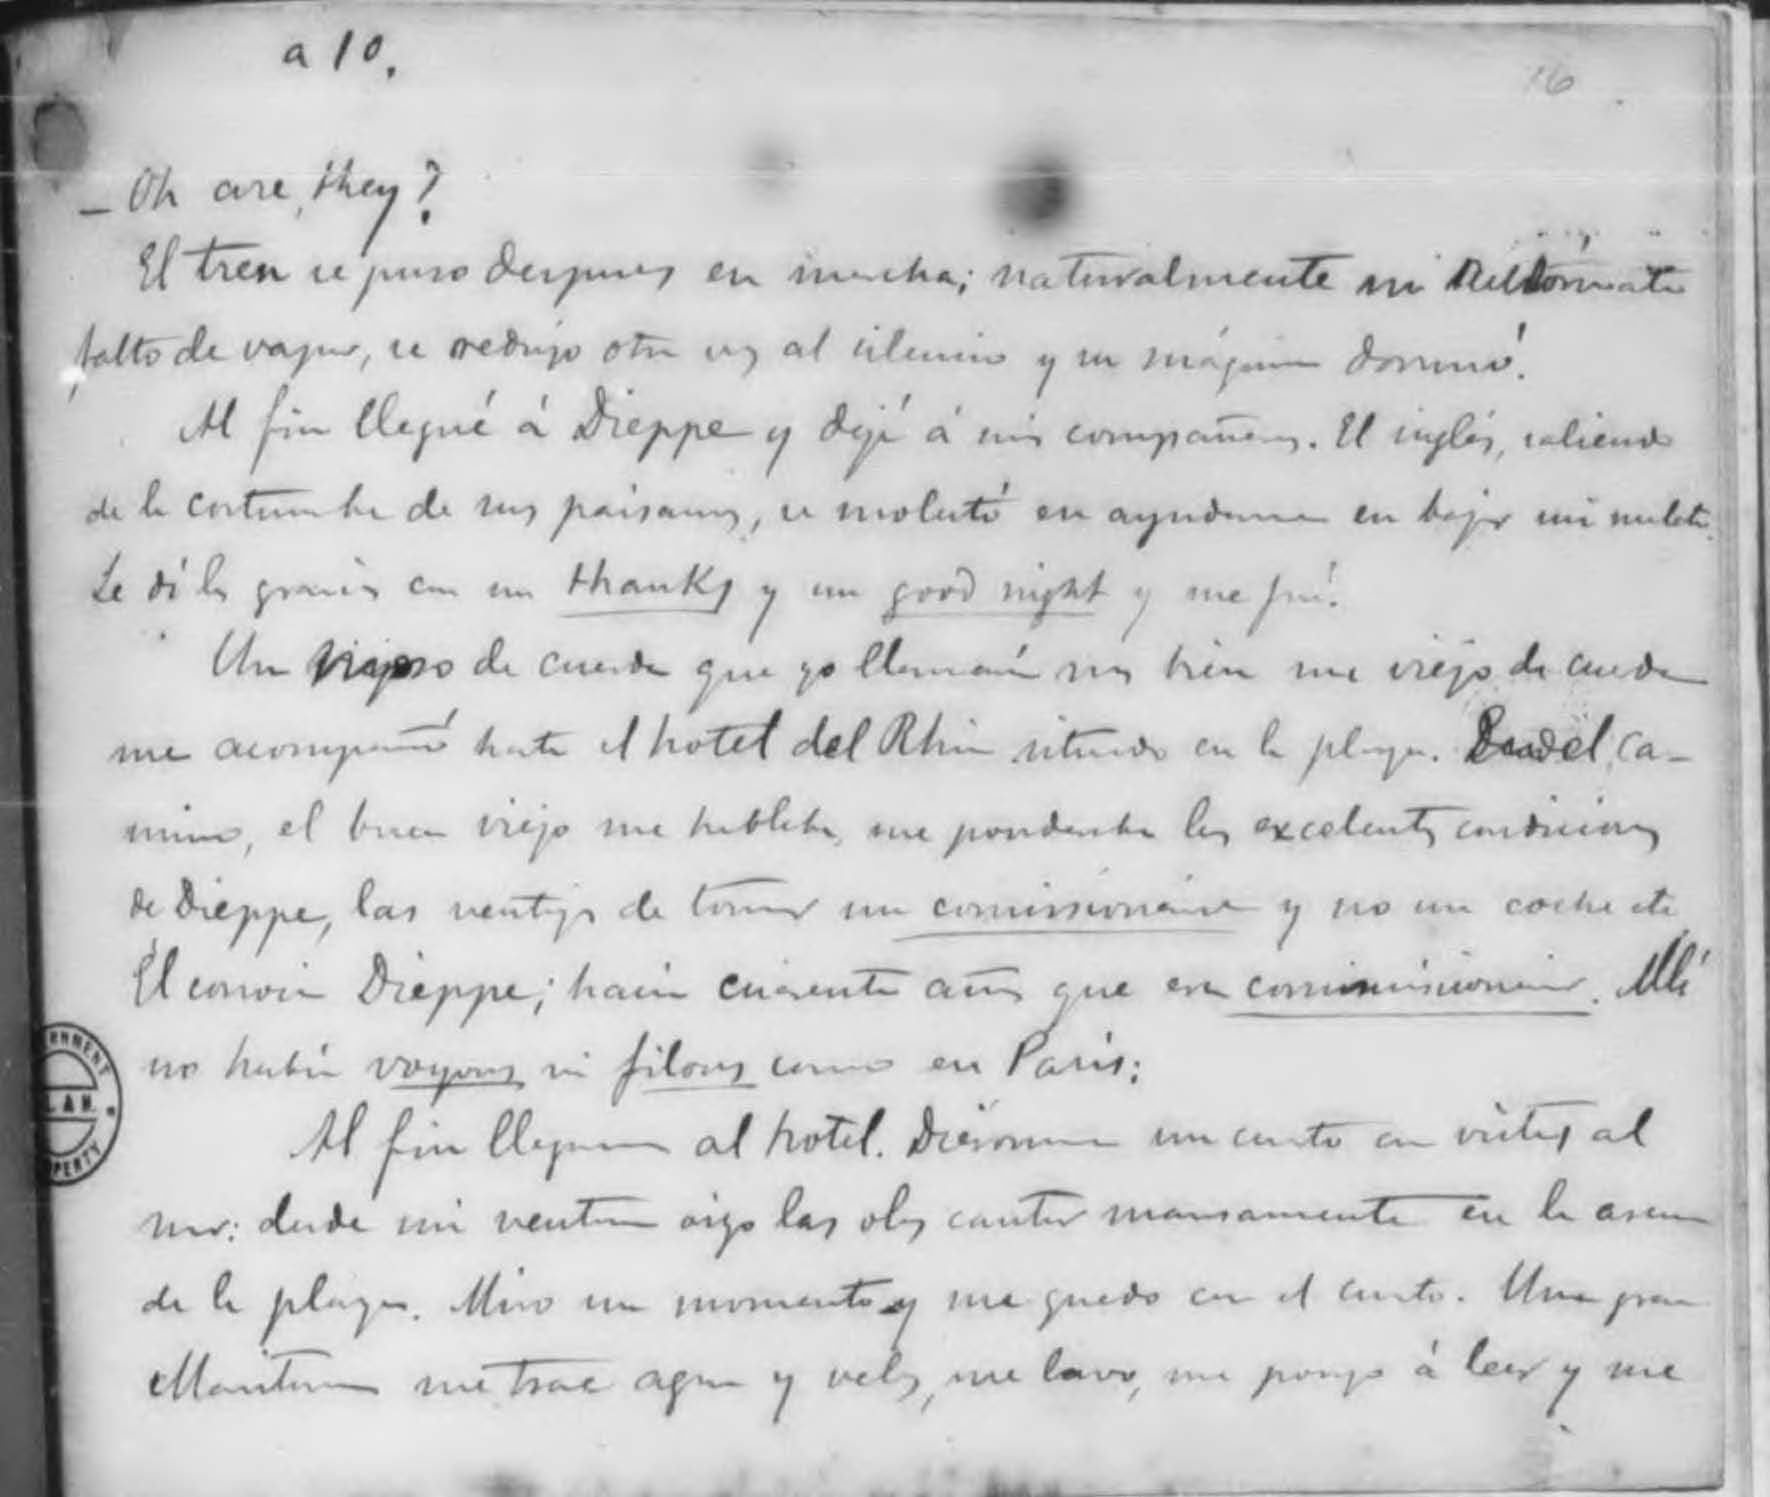 a 10.
16
— Oh are they?
El tren se puso despues en marcha; naturalmente mi
falto de vapor, se redujo otra vez al silencio y su máquina durmió.
Al fin llegué á Dieppe y dejé á mis compañeros. El inglés, saliendo
de la costumbre de sus paisanos, se molestó en ayudarme en bajar mi maleta.
Le dí las gracias con un thanks y un good night y me fuí.
Un viejo de cuerda que yo llamaría más bien un viejo de cuerda
me acompañó hasta el hotel del Rhin situado en la playa. En el ca-
mino, el buen viejo me hablaba, me ponderaba las excelentes condiciones
de Dieppe, las ventajas de tomar un comissionaire y no un coche etc
Él conocía Dieppe; hacía cuarenta años que era commissionaire. Allí
no había voyous ni filous como en Paris;
Al fin llegamos al hotel. Diéronme un cuarto con vistas al
mar: desde mi ventana oigo las olas cantar mansamente en la arena
de la playa. Miro un momento y me quedo en el cuarto. Una gran
me trae agua y velas, me lavo, me pongo á leer y me
RNMENT
LAN.
PERTY